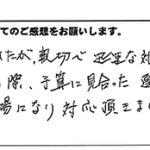 てのご感想をお願いします。
たが、親切で迅速な対
際、予算に見合った
場になり対応頂きま